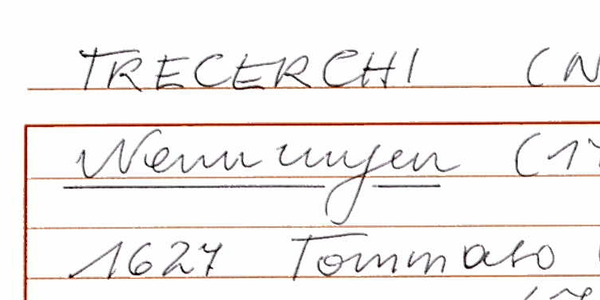 TRECERCHI (N
Nennungen (17
1627 Tommaso (